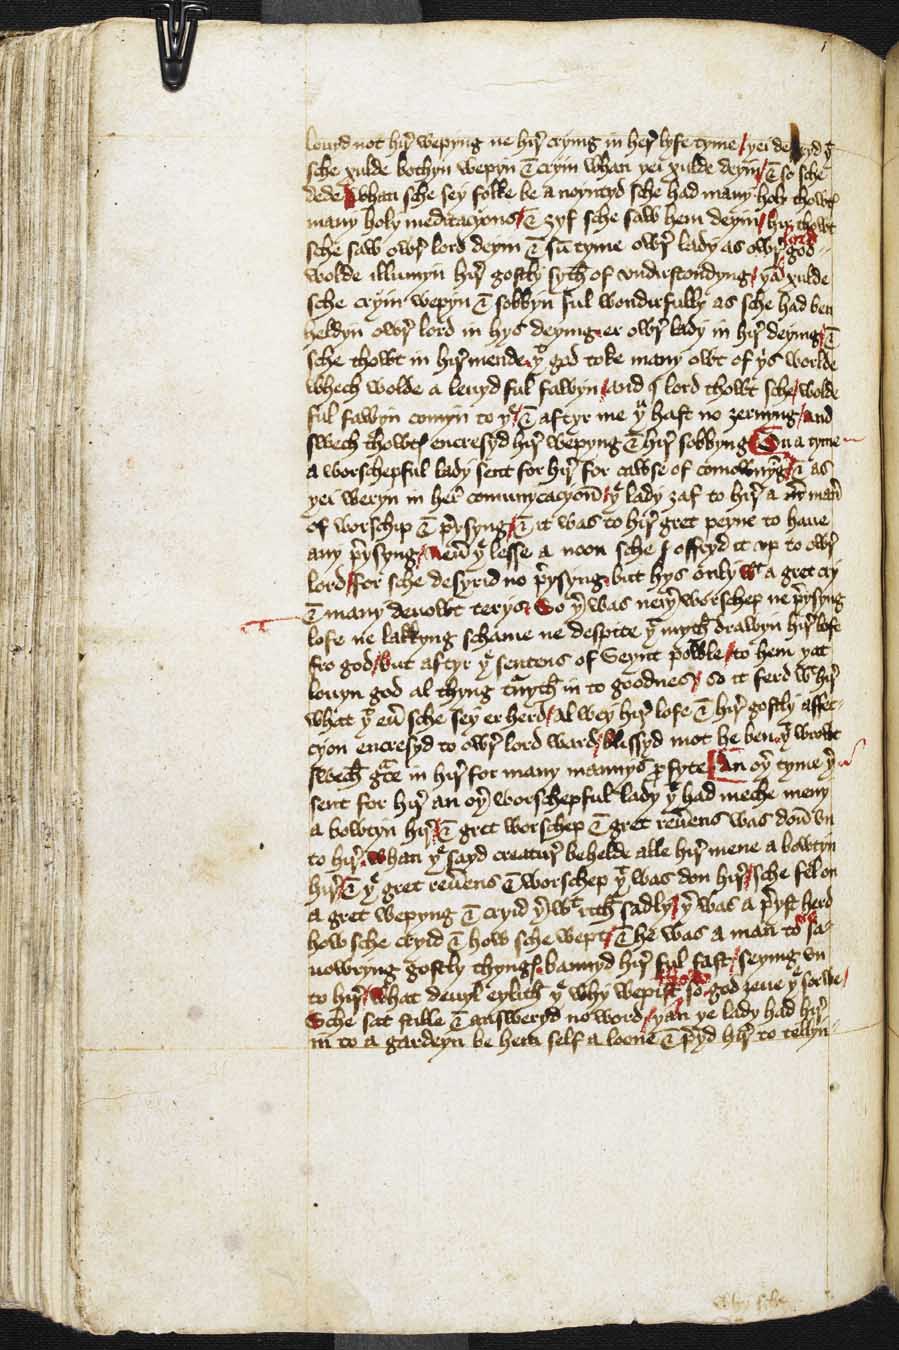 louyd not hir̃ wepyng ne hir̃ crying in her̃ lyfe tyme / yei desyryd yͭ
sche xulde bothyn wepyn & cryin whan yei xulde deyin / & so sche
dede / Whan sche sey folke be a noyntyd sche had many holy thowtꝭ
many holy meditacyons / & ȝyf sche saw hem deyin / hir̃ thowt
sche saw owr̃ lord deyin & sū tyme owr̃ lady as owr̃ lord god
wolde illumyn hir̃ gostly sytħ of vndirstondyng / yā xulde
sche cryin wepyn & sobbyn ful wondirfully as sche had ben
heldyn owr̃ lord in hys deying er owr̃ lady in hir̃ deying / &
sche thowt in hir̃ mende yͭ god toke many owt of yis worlde
whech wolde a leuyd ful fawyn / and I lord thowt sche / wolde
ful fawyn comyn to yͤ / & aftyr me yͧ hast no ȝernyng / and
swech thowtꝭ encresyd hir̃ wepyng & hir̃ sobbyng On a tyme
a worschepful lady sent for hir̃ for cawse of comownyg̃ / & as
yei weryn in her̃ comunycacyoñ / yͤ lady ȝaf to hir̃ a mañ
of worschip & p̃ysyng / & it was to hir̃ gret peyne to haue
any p̃ysyng / neuͬ yͤ lesse a noon sche offryd it vp to owr̃
lord / for sche desyrid no p̃ysyng but hys only wͭ a gret cry
& many deuowt terys So yͬ was neiyͬ worschep ne p̃ysyng
lofe ne lakkyng schame ne despite yͭ mytħ drawyn hir̃ lofe
fro god / but aftyr yͤ sentens of Seynt powle / to hem yat
louyn god al thyng turnytħ in to goodnes / so it ferd wͭ hir̃
what yͭ euͬ sche sey er herd / alwey hir̃ lofe & hir̃ gostly affec-
cyon encresyd to owr̃ lord ward / blissyd mot he ben yͭ wrowt
swecħ gͣce in hir̃ for many mannys ꝓfyte / An oyͬ tyme yͬ
sent for hir̃ an oyͬ worschepful lady yͭ had meche meny
a bowtyn hir̃ / & gret worschep & gret reuͬens was doñ vn
to hir̃ / whan yͤ sayd creatur̃ behelde alle hir̃ mene a bowtyn
hir̃ / & yͤ gret reuͬens & worschep yͭ was don hir̃ / sche fel on
a gret wepyng & cryid yͬwͭ ritħ sadly / yͬ was a p̃yst herd
how sche cryid & how sche wept / & he was a man not sa-
uowryng gostly thyngꝭ / bannyd hir̃ ful fast / seying vn
to hir̃ / What deuyl eylitħ yͤ why wepist thow so god ȝeue yͤ sorwe /
Sche sat stille & answeryd no word / yan ye lady had hir̃
in to a gardeyn be hem self a loone & p̃yd hir̃ to tellyn
why sche